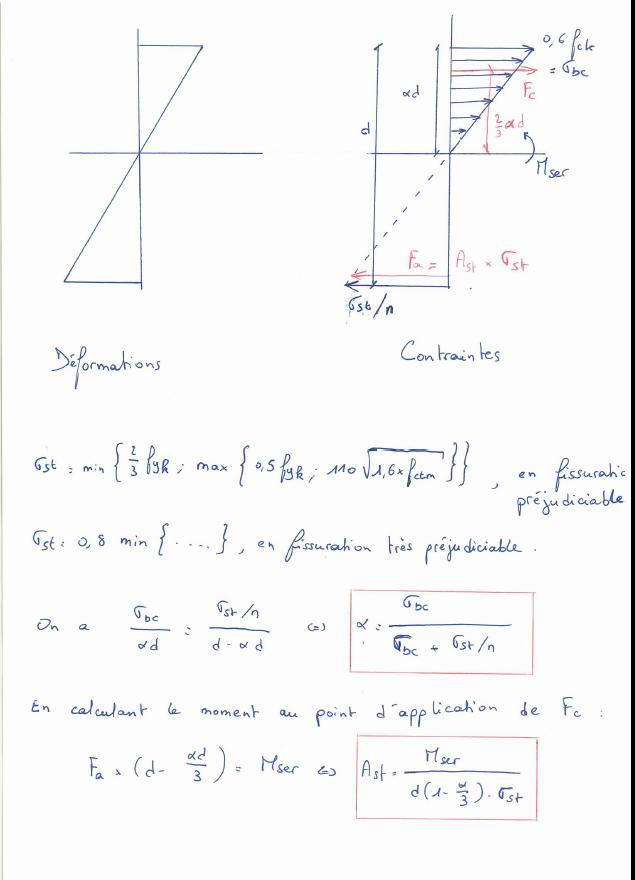 0,6 fck
= σbc
Fc
αd
d
2/3 αd
Mser
Fa = Ast × σst
σst/n
Déformations
Contraintes
σst = min { 2/3 fyk ; max { 0,5 fyk ; 110 √1,6 × fctm } } , en fissuratio
préjudiciable
σst = 0,8 min { . . . . } , en fissuration très préjudiciable .
On a σbc / αd = σst/n / d - αd <=> α = σbc / σbc + σst/n
En calculant le moment au point d'application de Fc :
Fa × (d - αd/3) = Mser <=> Ast = Mser / d(1 - α/3) . σst